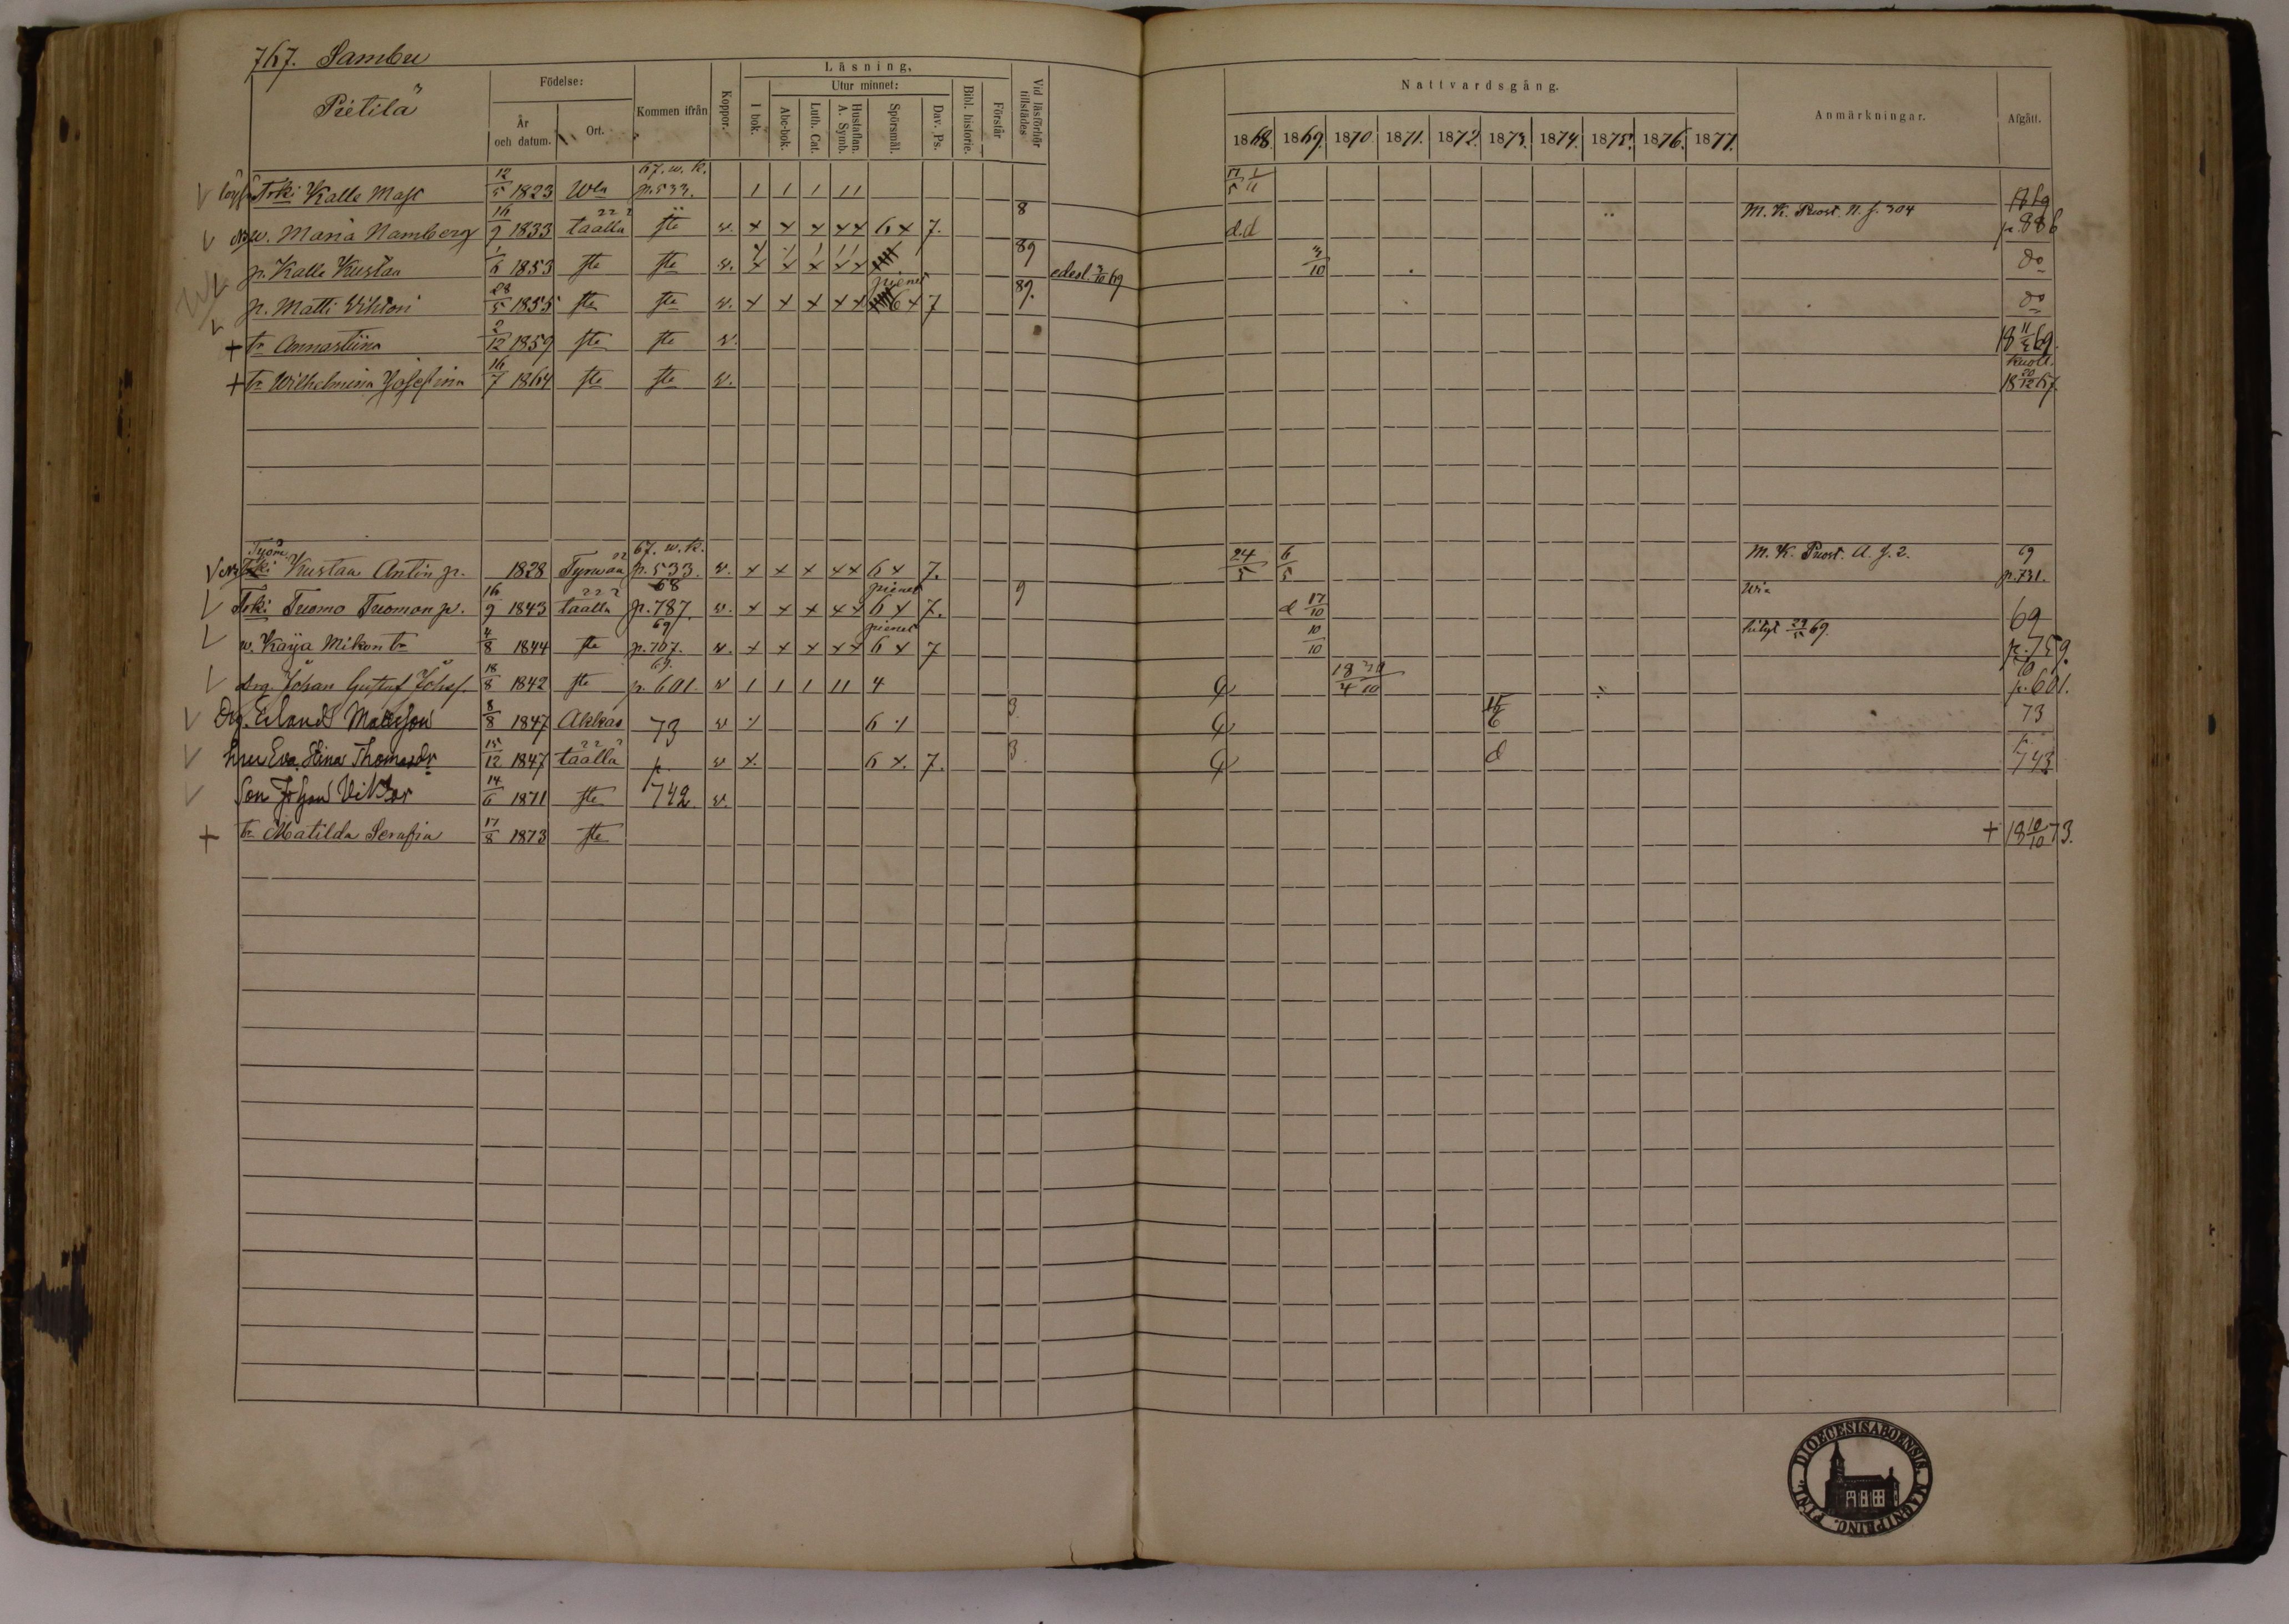 767. Sambu
Pietilä
Födelse:
År och datum.
Ort.
Kommen ifrån
Koppor.
Läsning.
I bok.
Utur minnet:
Abc-bok.
Luth. Cat.
Hustaflan. A. Symb.
Spörsmål.
Dav. Ps.
Bibl. historie.
Förstår
Vid läsförhör tillstädes
Nattvardsgång.
1868. 1869. 1870. 1871. 1872. 1873. 1874. 1875. 1876. 1877.
Anmärkningar.
Afgått.
Trki Kalle 12/5 1823 Wla 67. w. k. p. 533. 1 1 1 11 1869
w. Maria Namberg 16/9 1833 täällä ste w. x x x x x 6 x 7. 8 d.d M. K. Puost. N. f. 304 p. 886
p. Kalle Kustaa 1/6 1853 ste ste w. x x x x x 89 edesl. 3/10 69 3/10 do
p. Matti Wihtori 28/5 1855 ste ste w. x x x x x pienet 6 x 7 89. do
+ tr Annastiina 2/12 1859 ste ste w. 18 11/5 69.
+ tr Wilhelmina Josefina 16/7 1864 ste ste w. kuoll. 18 20/12 67.
Trki Kustaa Antin p. 1828 Tyrwää 67. w. k. p. 533. w. x x x x x 6 x 7. 24/5 6/5 M. K. Puost. A. f. 2. 69 p. 731.
Trki Tuomo Tuomon p. 16/9 1843 täällä 68 p. 787. w. x x x x x pienet 6 x 7. 9 d 17/10 69
w. Kaija Mikon tr 4/8 1844 ste 69 p. 707. w. x x x x x pienet 6 x 7 10/10 p. 759.
drg. Johan Gustaf Johsf. 18/8 1842 ste 69. p. 601. w 1 1 1 11 4 18/4 30/10 70 p. 601.
Drg. Erland Mattsson 8/8 1847 Akkas 73 w 6 3 15/6 73
hru Eva Stina Thomasdr 15/12 1847 täällä p. w x. 6 x. 7. 3 d p. 743
Son Johan Viktor 14/6 1871 ste 742 w.
+ tr Matilda Serafia 17/8 1873 ste + 18 10/10 73.
DIOECESIS ABOENSIS. MAGNI PRINC. FINL.